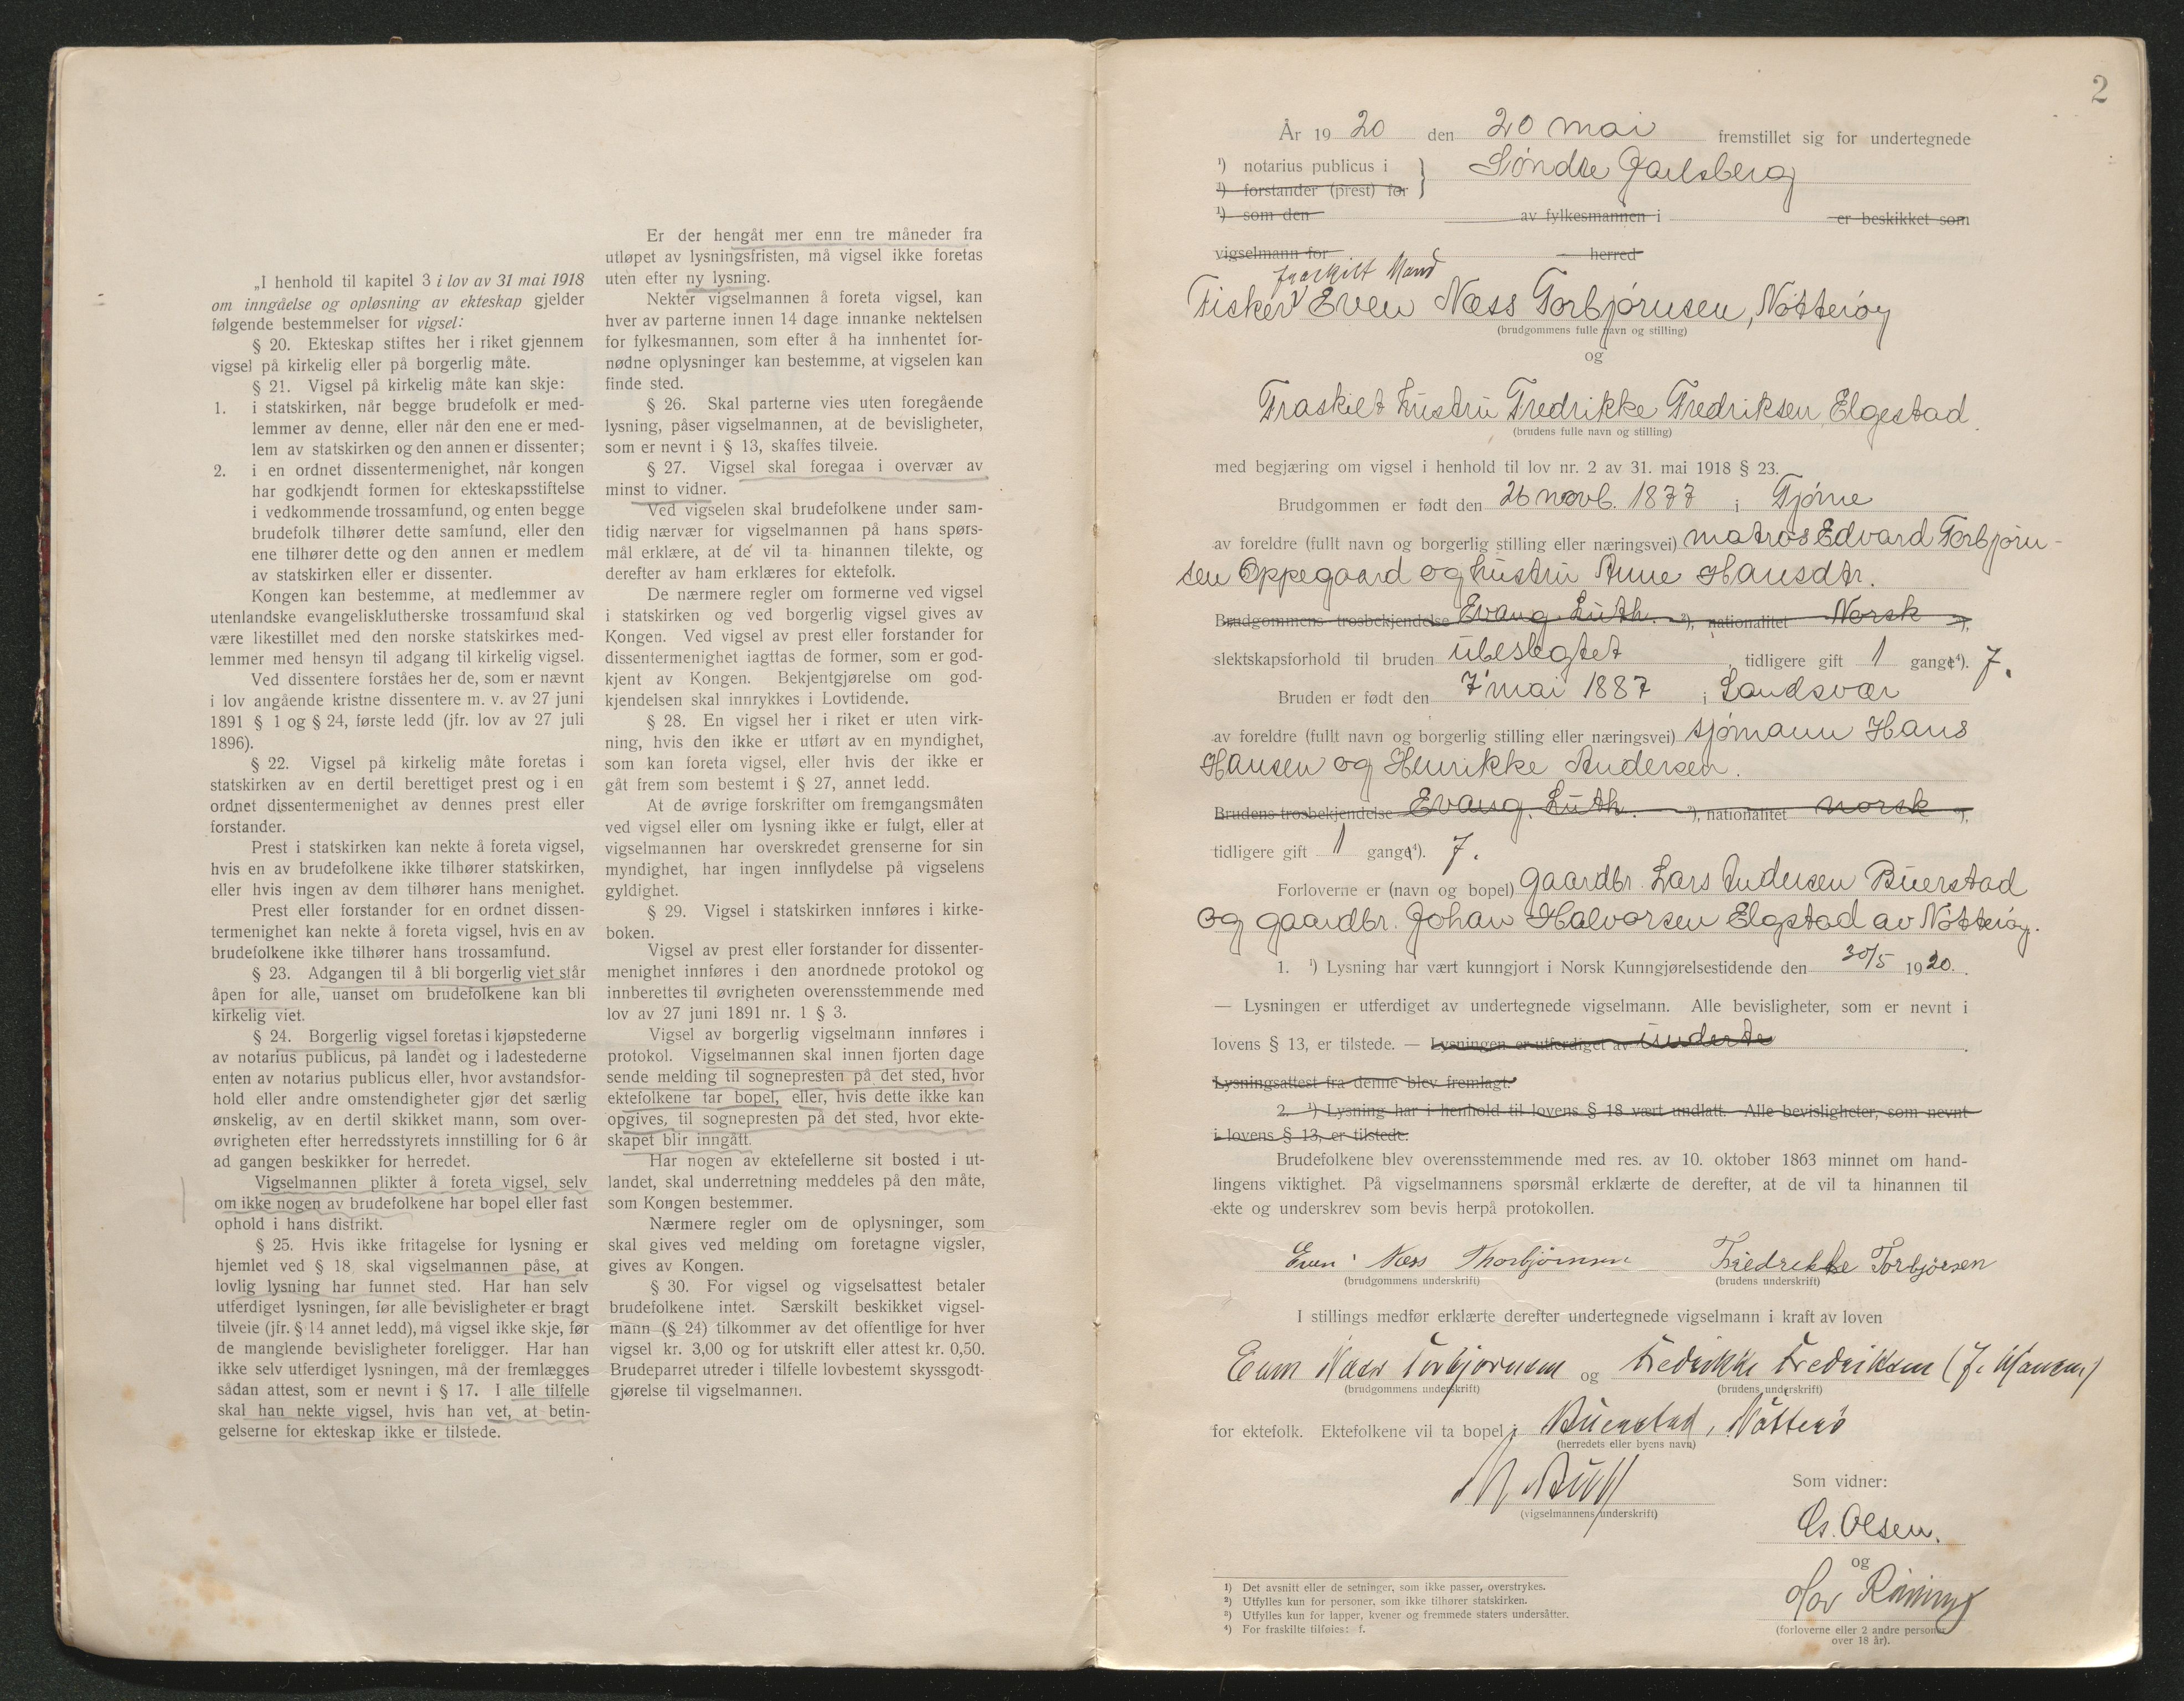 „I henhold til kapitel 3 i lov av 31 mai 1918
om inngåelse og opløsning av ekteskap gjelder
følgende bestemmelser for vigsel:
§ 20. Ekteskap stiftes her i riket gjennem
vigsel på kirkelig eller på borgerlig måte.
§ 21. Vigsel på kirkelig måte kan skje:
1. i statskirken, når begge brudefolk er med-
lemmer av denne, eller når den ene er med-
lem av statskirken og den annen er dissenter;
2. i en ordnet dissentermenighet, når kongen
har godkjendt formen for ekteskapsstiftelse
i vedkommende trossamfund, og enten begge
brudefolk tilhører dette samfund, eller den
ene tilhører dette og den annen er medlem
av statskirken eller er dissenter.
Kongen kan bestemme, at medlemmer av
utenlandske evangelisklutherske trossamfund skal
være likestillet med den norske statskirkes med-
lemmer med hensyn til adgang til kirkelig vigsel.
Ved dissentere forståes her de, som er nævnt
i lov angående kristne dissentere m. v. av 27 juni
1891 § 1 og § 24, første ledd (jfr. lov av 27 juli
1896).
§ 22. Vigsel på kirkelig måte foretas i
statskirken av en dertil berettiget prest og i en
ordnet dissentermenighet av dennes prest eller
forstander.
Prest i statskirken kan nekte å foreta vigsel,
hvis en av brudefolkene ikke tilhører statskirken,
eller hvis ingen av dem tilhører hans menighet.
Prest eller forstander for en ordnet dissen-
termenighet kan nekte å foreta vigsel, hvis en av
brudefolkene ikke tilhører hans trossamfund.
§ 23. Adgangen til å bli borgerlig viet står
åpen for alle, uanset om brudefolkene kan bli
kirkelig viet.
§ 24. Borgerlig vigsel foretas i kjøpstederne
av notarius publicus, på landet og i ladestederne
enten av notarius publicus eller, hvor avstandsfor-
hold eller andre omstendigheter gjør det særlig
ønskelig, av en dertil skikket mann, som over-
øvrigheten efter herredsstyrets innstilling for 6 år
ad gangen beskikker for herredet.
Vigselmannen plikter å foreta vigsel, selv
om ikke nogen av brudefolkene har bopel eller fast
ophold i hans distrikt.
§ 25. Hvis ikke fritagelse for lysning er
hjemlet ved § 18 skal vigselmannen påse, at
lovlig lysning har funnet sted. Har han selv
utferdiget lysningen, før alle bevisligheter er bragt
tilveie (jfr. § 14 annet ledd), må vigsel ikke skje, før
de manglende bevisligheter foreligger. Har han
ikke selv utferdiget lysningen, må der fremlægges
sådan attest, som er nevnt i § 17. I alle tilfelle
skal han nekte vigsel, hvis han vet, at betin-
gelserne for ekteskap ikke er tilstede.
Er der hengåt mer enn tre måneder fra
utløpet av lysningsfristen, må vigsel ikke foretas
uten efter ny lysning.
Nekter vigselmannen å foreta vigsel, kan
hver av parterne innen 14 dage innanke nektelsen
for fylkesmannen, som efter å ha innhentet for-
nødne oplysninger kan bestemme, at vigselen kan
finde sted.
§ 26. Skal parterne vies uten foregående
lysning, påser vigselmannen, at de bevisligheter,
som er nevnt i § 13, skaffes tilveie.
§ 27. Vigsel skal foregaa i overvær av
minst to vidner.
Ved vigselen skal brudefolkene under sam-
tidig nærvær for vigselmannen på hans spørs-
mål erklære, at de vil ta hinannen tilekte, og
derefter av ham erklæres for ektefolk.
De nærmere regler om formerne ved vigsel
i statskirken og ved borgerlig vigsel gives av
Kongen. Ved vigsel av prest eller forstander for
dissentermenighet iagttas de former, som er god-
kjent av Kongen. Bekjentgjørelse om god-
kjendelsen skal innrykkes i Lovtidende.
§ 28. En vigsel her i riket er uten virk-
ning, hvis den ikke er utført av en myndighet,
som kan foreta vigsel, eller hvis der ikke er
gåt frem som bestemt i § 27, annet ledd.
At de øvrige forskrifter om fremgangsmåten
ved vigsel eller om lysning ikke er fulgt, eller at
vigselmannen har overskredet grenserne for sin
myndighet, har ingen innflydelse på vigselens
gyldighet.
§ 29. Vigsel i statskirken innføres i kirke-
boken.
Vigsel av prest eller forstander for dissenter-
menighet innføres i den anordnede protokol og
innberettes til øvrigheten overensstemmende med
lov av 27 juni 1891 nr. 1 § 3.
Vigsel av borgerlig vigselmann innføres i
protokol. Vigselmannen skal innen fjorten dage
sende melding til sognepresten på det sted, hvor
ektefolkene tar bopel, eller, hvis dette ikke kan
opgives, til sognepresten på det sted, hvor ekte-
skapet blir inngått.
Har nogen av ektefellerne sit bosted i ut-
landet, skal underretning meddeles på den måte,
som Kongen bestemmer.
Nærmere regler om de oplysninger, som
skal gives ved melding om foretagne vigsler,
gives av Kongen.
§ 30. For vigsel og vigselsattest betaler
brudefolkene intet. Særskilt beskikket vigsel-
mann (§ 24) tilkommer av det offentlige for hver
vigsel kr. 3,00 og for utskrift eller attest kr. 0,50.
Brudeparret utreder i tilfelle lovbestemt skyssgodt-
gjørelse til vigselmannen.
2
År 1920 den 20 mai fremstillet sig for undertegnede
¹) notarius publicus i
¹) forstander (prest) for } Søndre Jarlsberg
¹) som den av fylkesmannen i er beskikket som
vigselmann for herred
fraskilt Mand
Fisker Even Næss Torbjørnsen, Nøtterøy
(brudgommens fulle navn og stilling)
og
Fraskilt hustru Fredrikke Fredriksen Elgestad.
(brudens fulle navn og stilling)
med begjæring om vigsel i henhold til lov nr. 2 av 31. mai 1918 § 23.
Brudgommen er født den 26 novb. 1877 i Tjøme
av foreldre (fullt navn og borgerlig stilling eller næringsvei) matros Edvard Torbjørn-
sen Oppegaard og hustru Anne Hansdtr.
Brudgommens trosbekjendelse Evang. Luth. ²), nationalitet Norsk ³),
slektskapsforhold til bruden ubeslegtet, tidligere gift 1 gang(e⁴). f.
Bruden er født den 7 mai 1887 i Sandsvær
av foreldre (fullt navn og borgerlig stilling eller næringsvei) sjømann Hans
Hansen og Henrikke Andersen.
Brudens trosbekjendelse Evang. Luth. ²), nationalitet norsk ³),
tidligere gift 1 gang(⁴). f.
Forloverne er (navn og bopel) gaardbr. Lars Andersen Buerstad
og gaardbr. Johan Halvorsen Elgstad av Nøtterøy.
1. ¹) Lysning har vært kunngjort i Norsk Kunngjørelsestidende den 30/5 1920.
— Lysningen er utferdiget av undertegnede vigselmann. Alle bevisligheter, som er nevnt i
lovens § 13, er tilstede. — Lysningen er utferdiget av underte
Lysningsattest fra denne blev fremlagt.
2. ¹) Lysning har i henhold til lovens § 18 vært undlatt. Alle bevisligheter, som nevnt
i lovens § 13, er tilstede.
Brudefolkene blev overensstemmende med res. av 10. oktober 1863 minnet om hand-
lingens viktighet. På vigselmannens spørsmål erklærte de derefter, at de vil ta hinannen til
ekte og underskrev som bevis herpå protokollen.
Even Næss Thorbjørnsen Fredrikke Torbjørsen
(brudgommens underskrift) (brudens underskrift)
I stillings medfør erklærte derefter undertegnede vigselmann i kraft av loven
Even Næss Torbjørnsen og Fredrikke Fredriksen (f. Hansen)
(brudgommens underskrift) (brudens underskrift)
for ektefolk. Ektefolkene vil ta bopel i Buerstad, Nøtterø
(herredets eller byens navn)
(vigselmannens underskrift)
Som vidner:
Olsen.
og
(forloverne eller 2 andre personer
over 18 år).
¹) Det avsnitt eller de setninger, som ikke passer, overstrykes.
²) Utfylles kun for personer, som ikke tilhører statskirken.
³) Utfylles kun for lapper, kvener og fremmede staters undersåtter.
⁴) For fraskilte tilføies: f.